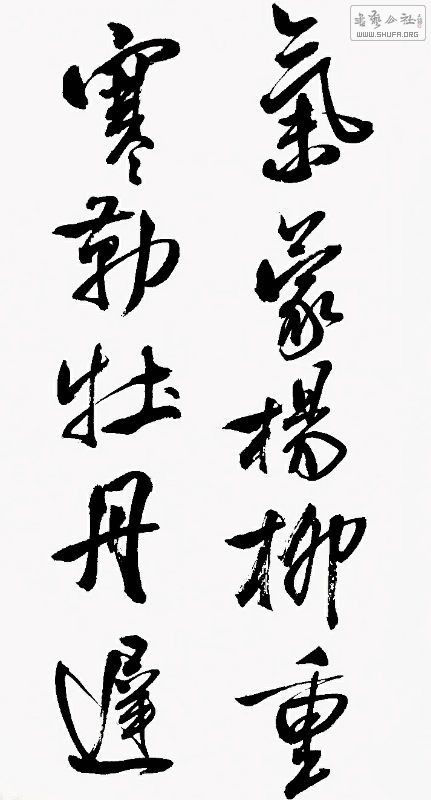 氣蒙楊柳重
寒勒牡丹遲
書藝公社
WWW.SHUFA.ORG